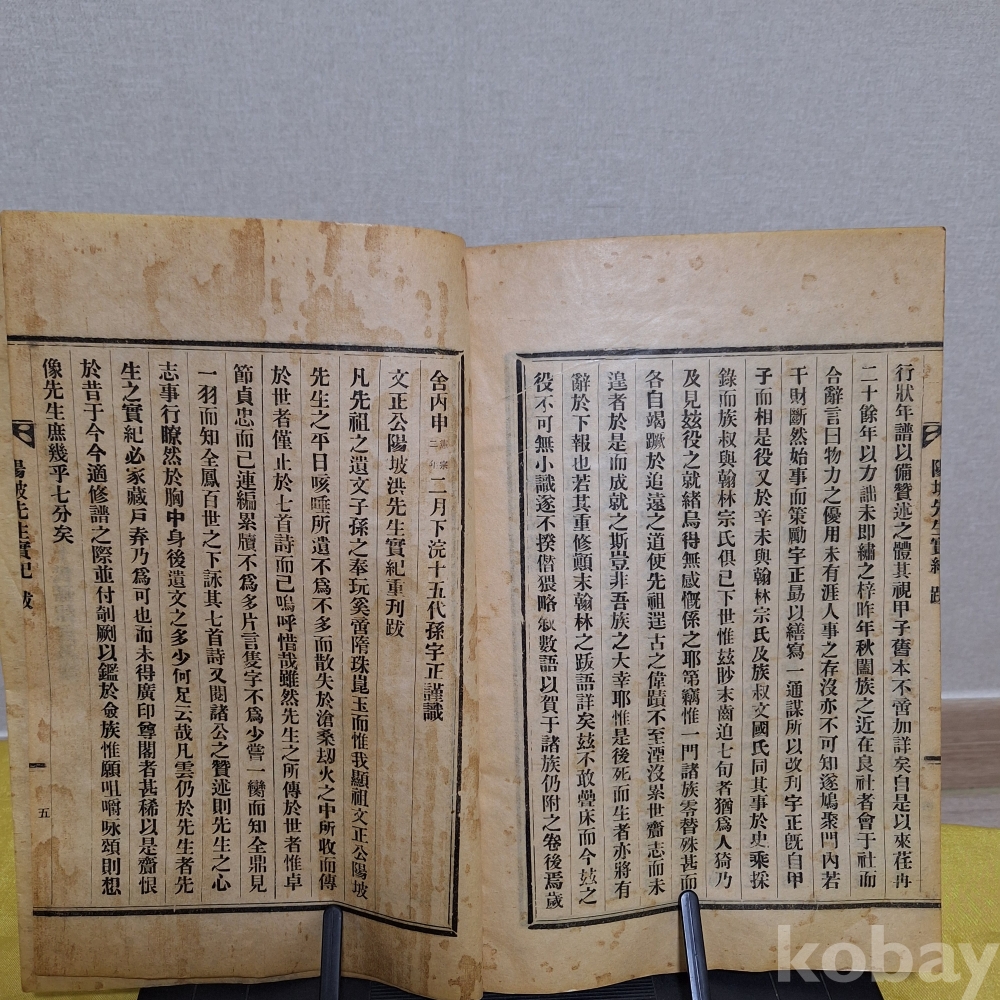 行狀年譜以備贊述之體其視甲子舊本不啻加詳矣自是以來荏冉
二十餘年以力詘未即繡之梓昨年秋闔族之近在良社者會于社而
合辭言曰物力之優用未有涯人事之存沒亦不可知遂鳩聚門內若
干財斷然始事而策勵字正勗以繕寫一通謀所以改刋字正旣自甲
子而相是役又於辛未與翰林宗氏及族叔文國氏同其事於史乘採
錄而族叔與翰林宗氏俱已下世惟玆眇末齒迫七旬者猶爲人猗乃
及見玆役之就緒烏得無感慨係之耶第竊惟一門諸族零替殊甚而
各自竭蹶於追遠之道使先祖逕古之偉蹟不至湮沒累世齎志而未
遑者於是而成就之斯豈非吾族之大幸耶惟是後死而生者亦將有
辭於下報也若其重修顚末翰林之跋語詳矣玆不敢疊床而今玆之
役不可無小識遂不揆僭猥略敍數語以賀于諸族仍附之卷後焉歲
陽坡先生實紀 跋
舍丙申二月下浣十五代孫字正謹識
文正公陽坡洪先生實紀重刋跋
凡先祖之遺文子孫之奉玩奚啻隋珠崑玉而惟我顯祖文正公陽坡
先生之平日咳唾所遺不爲不多而散失於滄桑刼火之中所收而傳
於世者僅止於七首詩而已嗚呼惜哉雖然先生之所傳於世者惟卓
節貞忠而已連編累牘不爲多片言隻字不爲少嘗一臠而知全鼎見
一羽而知全鳳百世之下詠其七首詩又閱諸公之贊述則先生之心
志事行瞭然於胸中身後遺文之多少何足云哉凡雲仍於先生者先
生之實紀必家藏戶弆乃爲可也而未得廣印尊閣者甚稀以是齎恨
於昔于今今適修譜之際並付剞劂以鑑於僉族惟願咀嚼咏頌則想
像先生庶幾乎七分矣
陽坡先生實記 跋
五
kobay